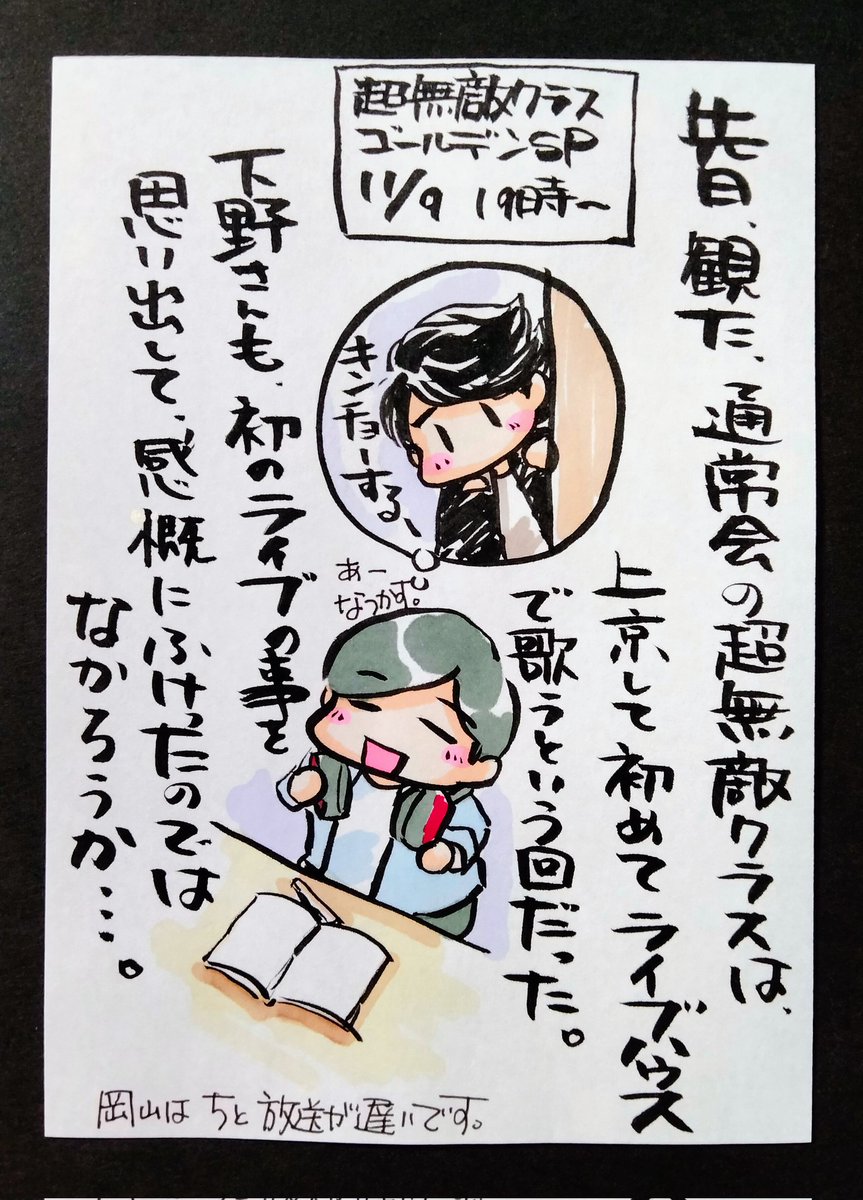 超無敵クラス
ゴールデンSP
11/9 19時〜
先日、観た、通常会の超無敵クラスは、
上京して初めてライブハウス
で歌うという回だった。
キンチョーするー
あー
なつかす。
下野さんも、初のライブの事を
思い出して、感慨にふけったのでは
なかろうか…。
岡山はちと放送が遅いです。